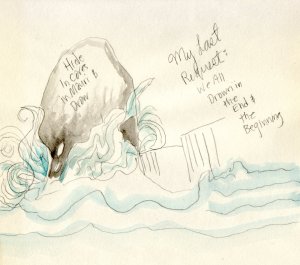 Hide
In Caves
In Maui &
Draw
My Last
Request:
We All
Drown in
the
End &
the
Beginning